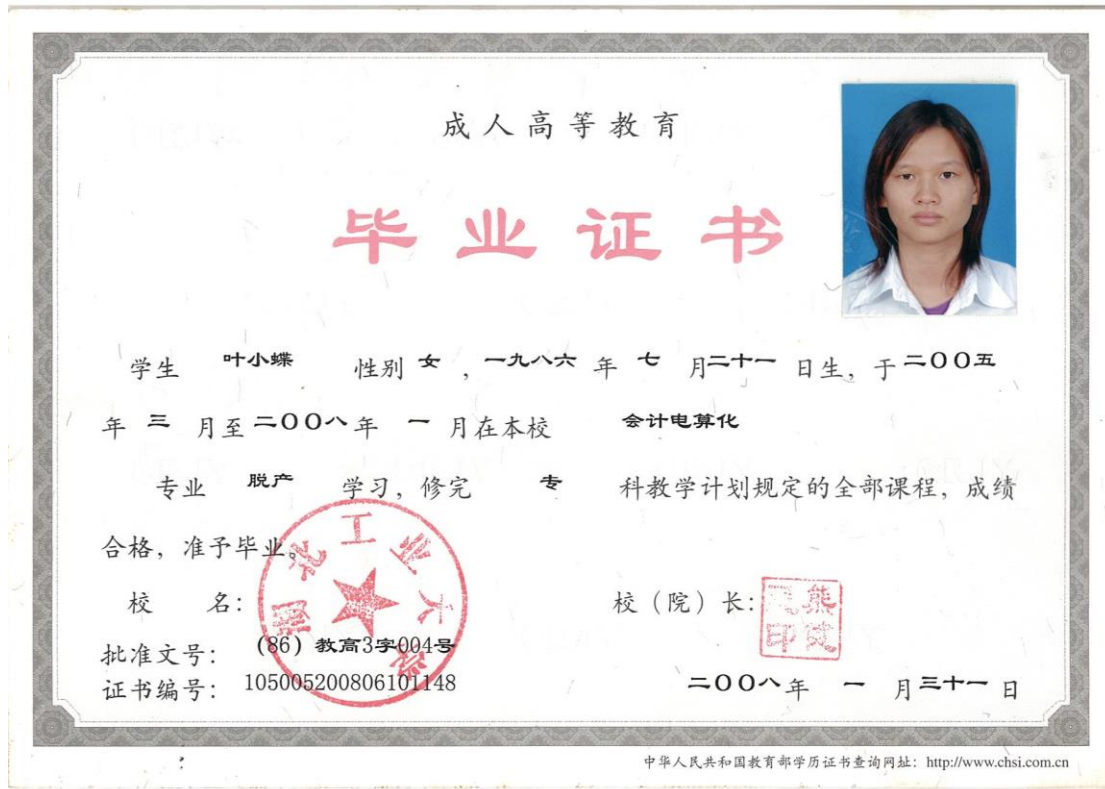 成人高等教育
毕业证书
学生 叶小蝶 性别 女，一九八六 年 七 月二十一 日生，于 二OO五
年 三 月至 二OO八 年 一 月在本校 会计电算化
专业 脱产 学习，修完 专 科教学计划规定的全部课程，成绩
合格，准予毕业。
湖北工业大学
校 名： 校（院）长：
批准文号： (86) 教高3字004号
证书编号： 105005200806101148 二OO八 年 一 月三十一 日
中华人民共和国教育部学历证书查询网址：http://www.chsi.com.cn